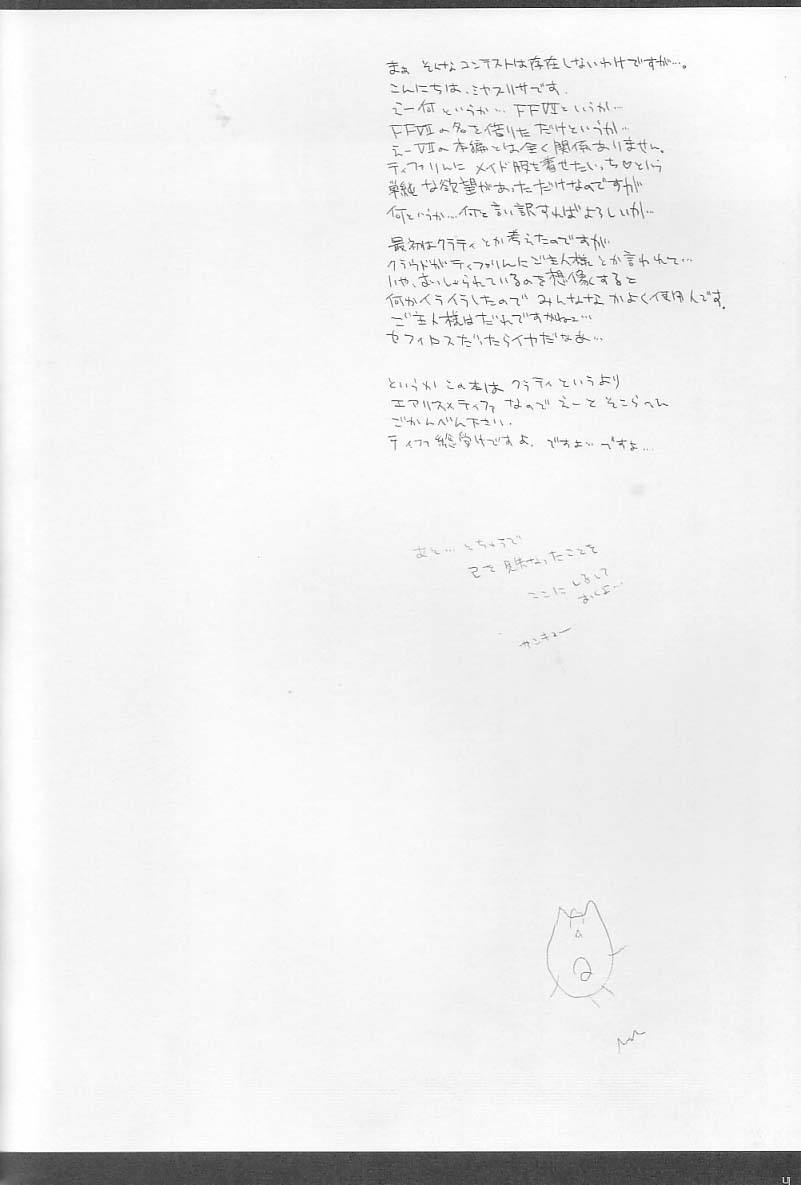 まぁ そんなコンテストは存在しないわけですが…。
こんにちは、ミヤスリサです.
えー何というか… FFⅦというか…
FFⅦの名を借りた だけというか…
えーⅦの本編とは全く関係ありません。
ティファりんに メイド服を着せたいっち♡という
単純な欲望があっただけなのですが
何というか…何と言い訳すればよろしいか…
最初はクラティとか考えたのですが
クラウドがティファりんにご主人様とか言われて…
いや、おっしゃられているのを想像すると
何かイライラしたので みんななかよく使用人です.
ご主人様はだれですかねェ…
セフィロスだったらイヤだなあ…
というか この本は クラティというより
エアリス×ティファ なので えーと そこらへん
ごかんべん下さい.
ティファ総受けですよ. ですよ… ですよ…
あと… とちゅうで
己を見失なったことを
ここに しるして
おくよ…
サンキュー